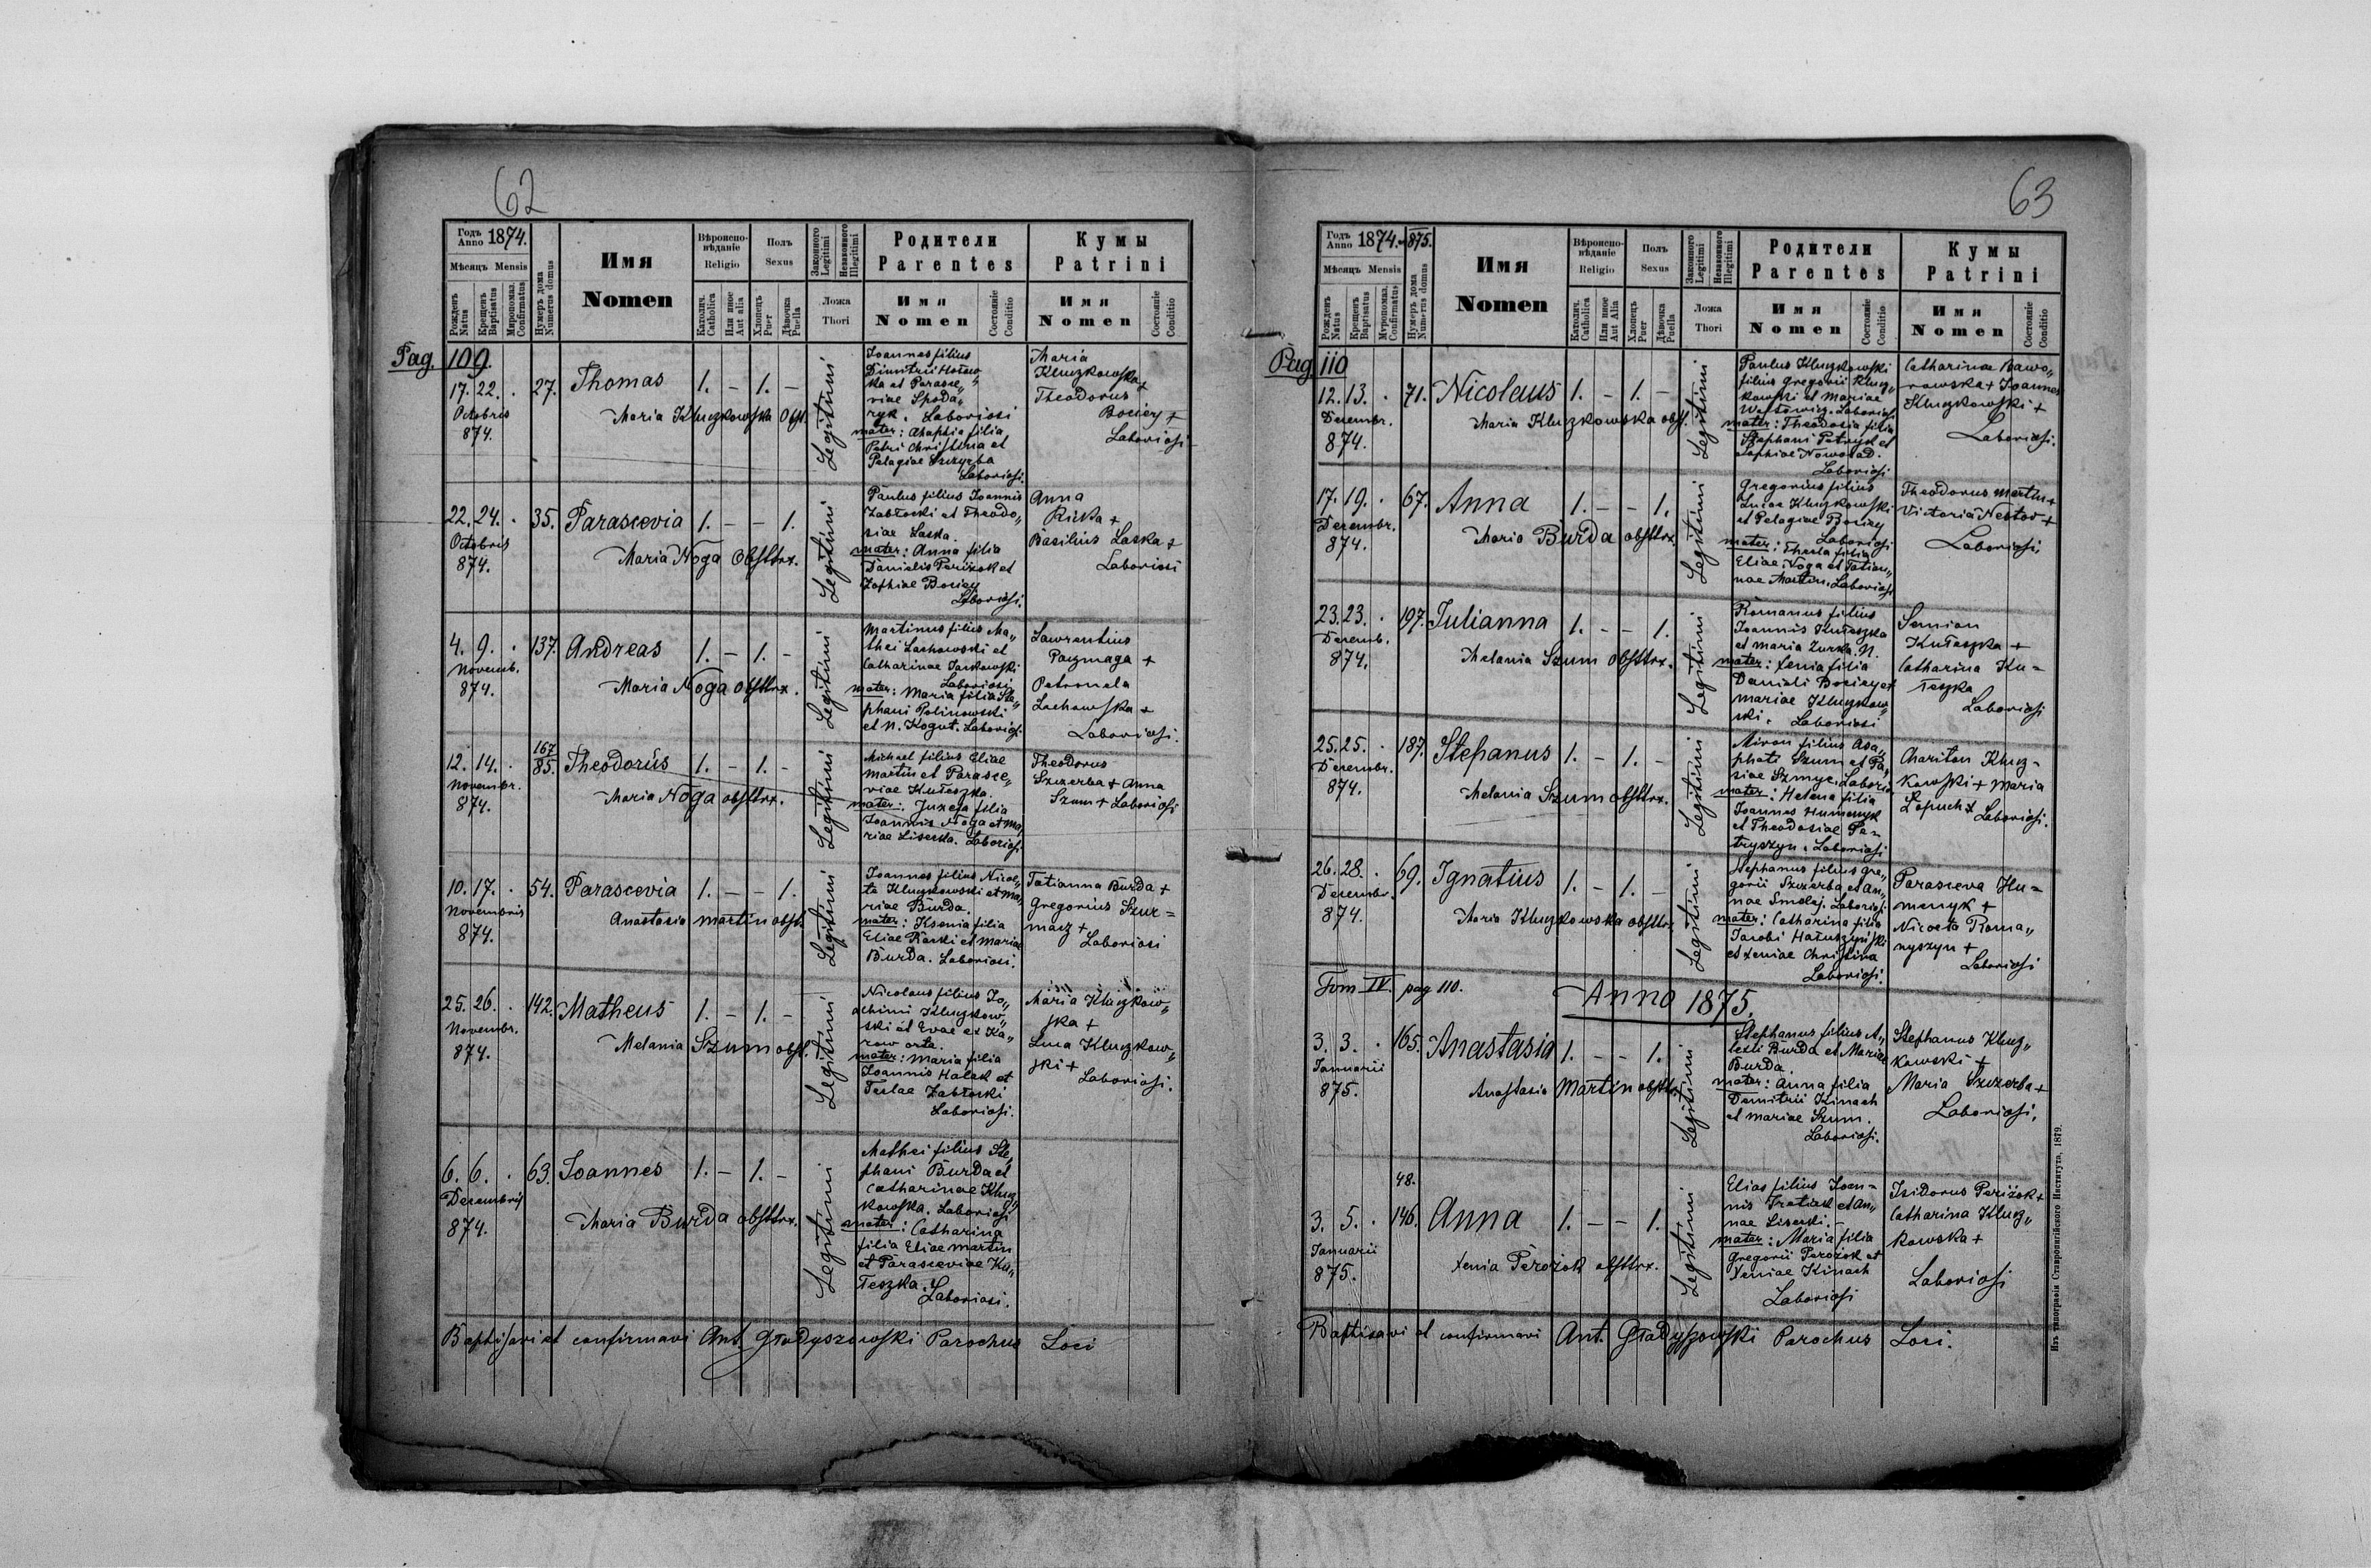 62
Годъ Anno 1874.
Мѣсяцъ Mensis
Рожденъ Natus
Крещенъ Baptisatus
Миропомаз. Confirmatus
Нумеръ дома Numerus domus
Имя
Nomen
Вѣроиспо-
вѣданіе
Religio
Католич. Catholica
Или иное Aut alia
Полъ
Sexus
Хлопецъ Puer
Дѣвочка Puella
Законного Legitimi
Незаконного Illegitimi
Ложа
Thori
Родители
Parentes
Имя
Nomen
Состояніе Conditio
Кумы
Patrini
Имя
Nomen
Состояніе Conditio
Pag. 109.
17. 22. . 27. Thomas 1. – 1. –
Octobris
874.
Maria Kluczkowska obst.
Legitimi
Joannes filius
Dimitrii
ka et Parasce„
viae Spoda„
ryk. Laboriosi
mater: Ahaphia filia
Petri Christina et
Pelagiae Szczyrba
Laboriosi.
Maria
Kluczkowska +
Theodorus
Bociey +
Laboriosi
22. 24. . 35. Parascevia 1. – – 1.
Octobris
874.
Maria Noga obsttrx.
Legitimi
Paulus filius Joannis
Zabłocki et Theodo„
siae Laska.
mater: Anna filia
Danielis Perižok et
Zophiae Bociey
Laboriosi.
Anna
Rička +
Basilius Laska +
Laboriosi
4. 9. . 137. Andreas 1. – 1. –
Novemb.
874.
Maria Noga obsttrx.
Legitimi
Martinus filius Ma„
thei Lachowski et
Catharinae Jankowski
Laboriosi
mater: Maria filia Ste„
phani Polinowski
et N. Kogut. Laboriosi
Lawrentius
Paczmaga +
Petronela
Lachowska +
Laboriosi.
12. 14. . 167 85. Theodorus 1. – 1. –
Novembr.
874.
Maria Noga obsttrx.
Legitimi
Michael filius Eliae
Martin et Parasce„
viae Kułeszka.
mater: Juzefa filia
Joannis Noga et Ma„
riae Lisecka. Laboriosi
Theodorus
Szczerba + Anna
Szum + Laboriosi
10. 17. . 54. Parascevia 1. – – 1.
Novembris
874.
Anastasia Martin obst.
Legitimi
Joannes filius Nicoe„
ta Kluczkowski et Ma„
riae Burda.
mater: Ksenia filia
Eliae Raski et Mariae
Burda. Laboriosi.
Tatianna Burda +
Gregorius Szur=
macz +
Laboriosi
25. 26. . 142. Matheus 1. – 1. –
Novembr.
874.
Melania Szum obst.
Legitimi
Nicolaus filius Jo„
achimi Kluczkow„
ski et Evae ex Ka„
row orta.
mater: Maria filia
Joannis Halak et
Teclae Zabłocki
Laboriosi.
Maria Kluczkow„
ska +
Luca Kluczkow„
ski +
Laboriosi.
6. 6. . 63. Joannes 1. – 1. –
Decembris
874.
Maria Burda obsttrx.
Legitimi
Mathei filius Ste„
phani Burda et
Catharinae Klucz„
kowska. Laboriosi
mater: Catharina
filia Eliae Martin
et Parasceviae Ku„
łeszka.
Laboriosi.
Baptisavi et confirmavi Ant. Gładyszowski Parochus Loci
63
Годъ Anno 1874.–875.
Мѣсяцъ Mensis
Рожденъ Natus
Крещенъ Baptisatus
Мѵропомаз. Confirmatus
Нумеръ дома Numerus domus
Имя
Nomen
Вѣроиспо-
вѣданіе
Religio
Католич. Catholica
Или иное Aut Alia
Полъ
Sexus
Хлопецъ Puer
Дѣвочка Puella
Законного Legitimi
Незаконного Illegitimi
Ложа
Thori
Родители
Parentes
Имя
Nomen
Состояніе Conditio
Кумы
Patrini
Имя
Nomen
Состояніе Conditio
Pag. 110
12. 13. . 71. Nicolaus 1. – 1. –
Decembr.
874.
Maria Kluczkowska obst.
Legitimi
Paulus Kluczkowski
filius Gregorii Klucz„
kowski et Mariae
Laboriosi
mater: Theodosia filia
Stephani Petryk et
Sophiae Nowosad.
Laboriosi
Catharina Bawo„
rowska + Joannes
Kluczkowski +
Laboriosi.
17. 19. . 67. Anna 1. – – 1.
Decembr.
874.
Maria Burda obsttrx.
Legitimi
Gregorius filius
Lucae Kluczkowski
et Pelagiae Bociey
Laboriosi
mater: Thecla filia
Eliae Noga et Tatian„
nae Martin. Laboriosi
Theodorus Martin +
Victoria Nestor +
Laboriosi,
23. 23. . 197. Julianna 1. – – 1.
Decemb.
874.
Melania Szum obsttrx.
Legitimi
Romanus filius
Joannis Kułeszka
et Maria Zurka. N.
mater: Xenia filia
Danieli Bociey et
Mariae Kluczkow„
ski. Laboriosi
Semion
Kułeszka +
Catharina Ku=
łeszka
Laboriosi
25. 25. . 187. Stephanus 1. – 1. –
Decembr.
874.
Melania Szum obsttrx.
Legitimi
Miron filius Asa„
phati Szum et Pa„
siae Szmyc. Laborio
mater: Helena filia
Joannes Humenyk
et Theodosiae Pe=
tryszyn. Laboriosi
Chariton Klucz=
kowski + Maria
Łopuch + Laboriosi.
26. 28. . 69. Ignatius 1. – 1. –
Decembr.
874.
Maria Kluczkowska obsttrx.
Legitimi
Stephanus filius Gre„
gorii Szczerba et An„
nae Smolej. Laboriosi
mater: Catharina filia
Jacobi Hałuszyński
et Xeniae Christina
Laboriosi.
Parasceva Hu=
menyk +
Niceta Roma„
nyszyn +
Laboriosi
Tom IV. pag 110.
Anno 1875.
3. 3. . 165. Anastasia 1. – – 1.
Januarii
875.
Anastasia Martin obsttrx.
Legitimi
Stephanus filius A„
lexii Burda et Mariae
Burda.
mater: Anna filia
Demitrii Kinach
et Mariae Szum.
Laboriosi.
Stephanus Klucz„
kowski +
Maria Szczerba +
Laboriosi.
48.
3. 5. . 146. Anna 1. – – 1.
Januarii
875.
Xenia Perožok obsttrx.
Legitimi
Elias filius Joan=
nis Tratiak et An„
nae Lisecki. –
mater: Maria filia
Gregorii Perožok et
Xeniae Kinach
Laboriosi
Isidorus Perižok +
Catharina Klucz„
kowska +
Laboriosi
Baptisavi et confirmavi Ant. Gładyszowski Parochus Loci.
Изъ типографіи Ставропигійского Института. 1879.